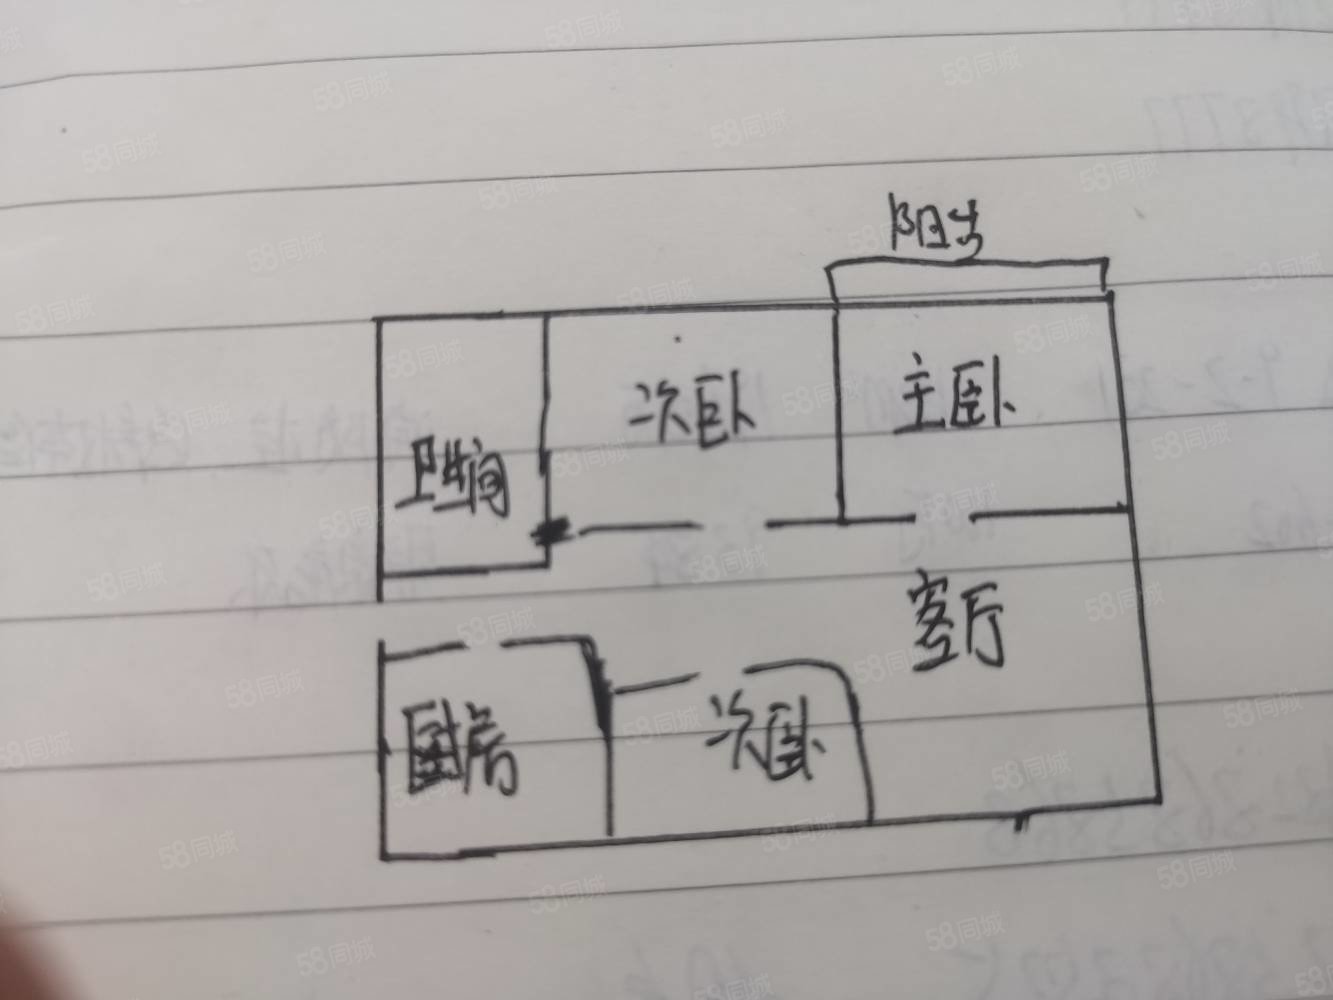 阳台
次卧
主卧
卫生间
客厅
厨房
次卧
58同城